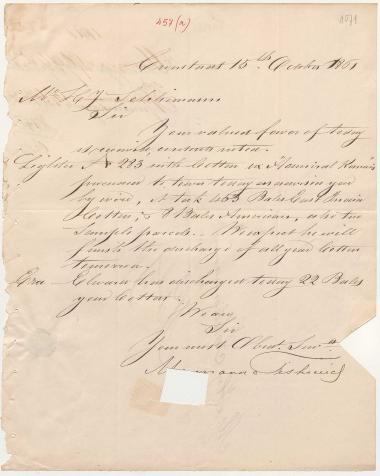 457(a)
Cronstadt 15th October 1861
Mr. H. Schliemann
Sir
Your valued favor of today
is received, contents noted.
Lighter No 283 with Cotton ex Admiral
proceeded to town today
by wire, 453 Bales East India
Cotton, & Bales American,
sample parcels. We expect he will
finish the discharge of all your Cotton
tomorrow.
Edward has discharged today 22 Bales
your Cotton.
We are,
Sir
Your most Obedt. Servts